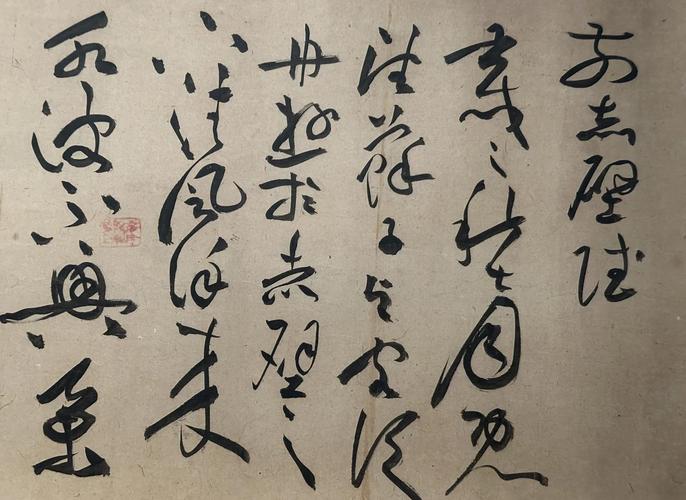 前赤壁賦
壬戌之秋七月既
望蘇子與客泛
舟遊於赤壁之
下清風徐來
水波不興舉